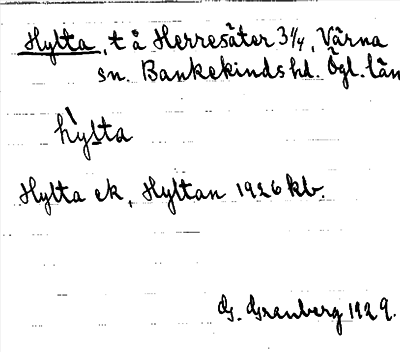 Hylta, t å Herresäter 3 1/4, Värna
sn. Bankekinds hd. Ögl. län
hỳlta
Hylta ek, Hyltan 1926 kb.
G. Granberg 1929.